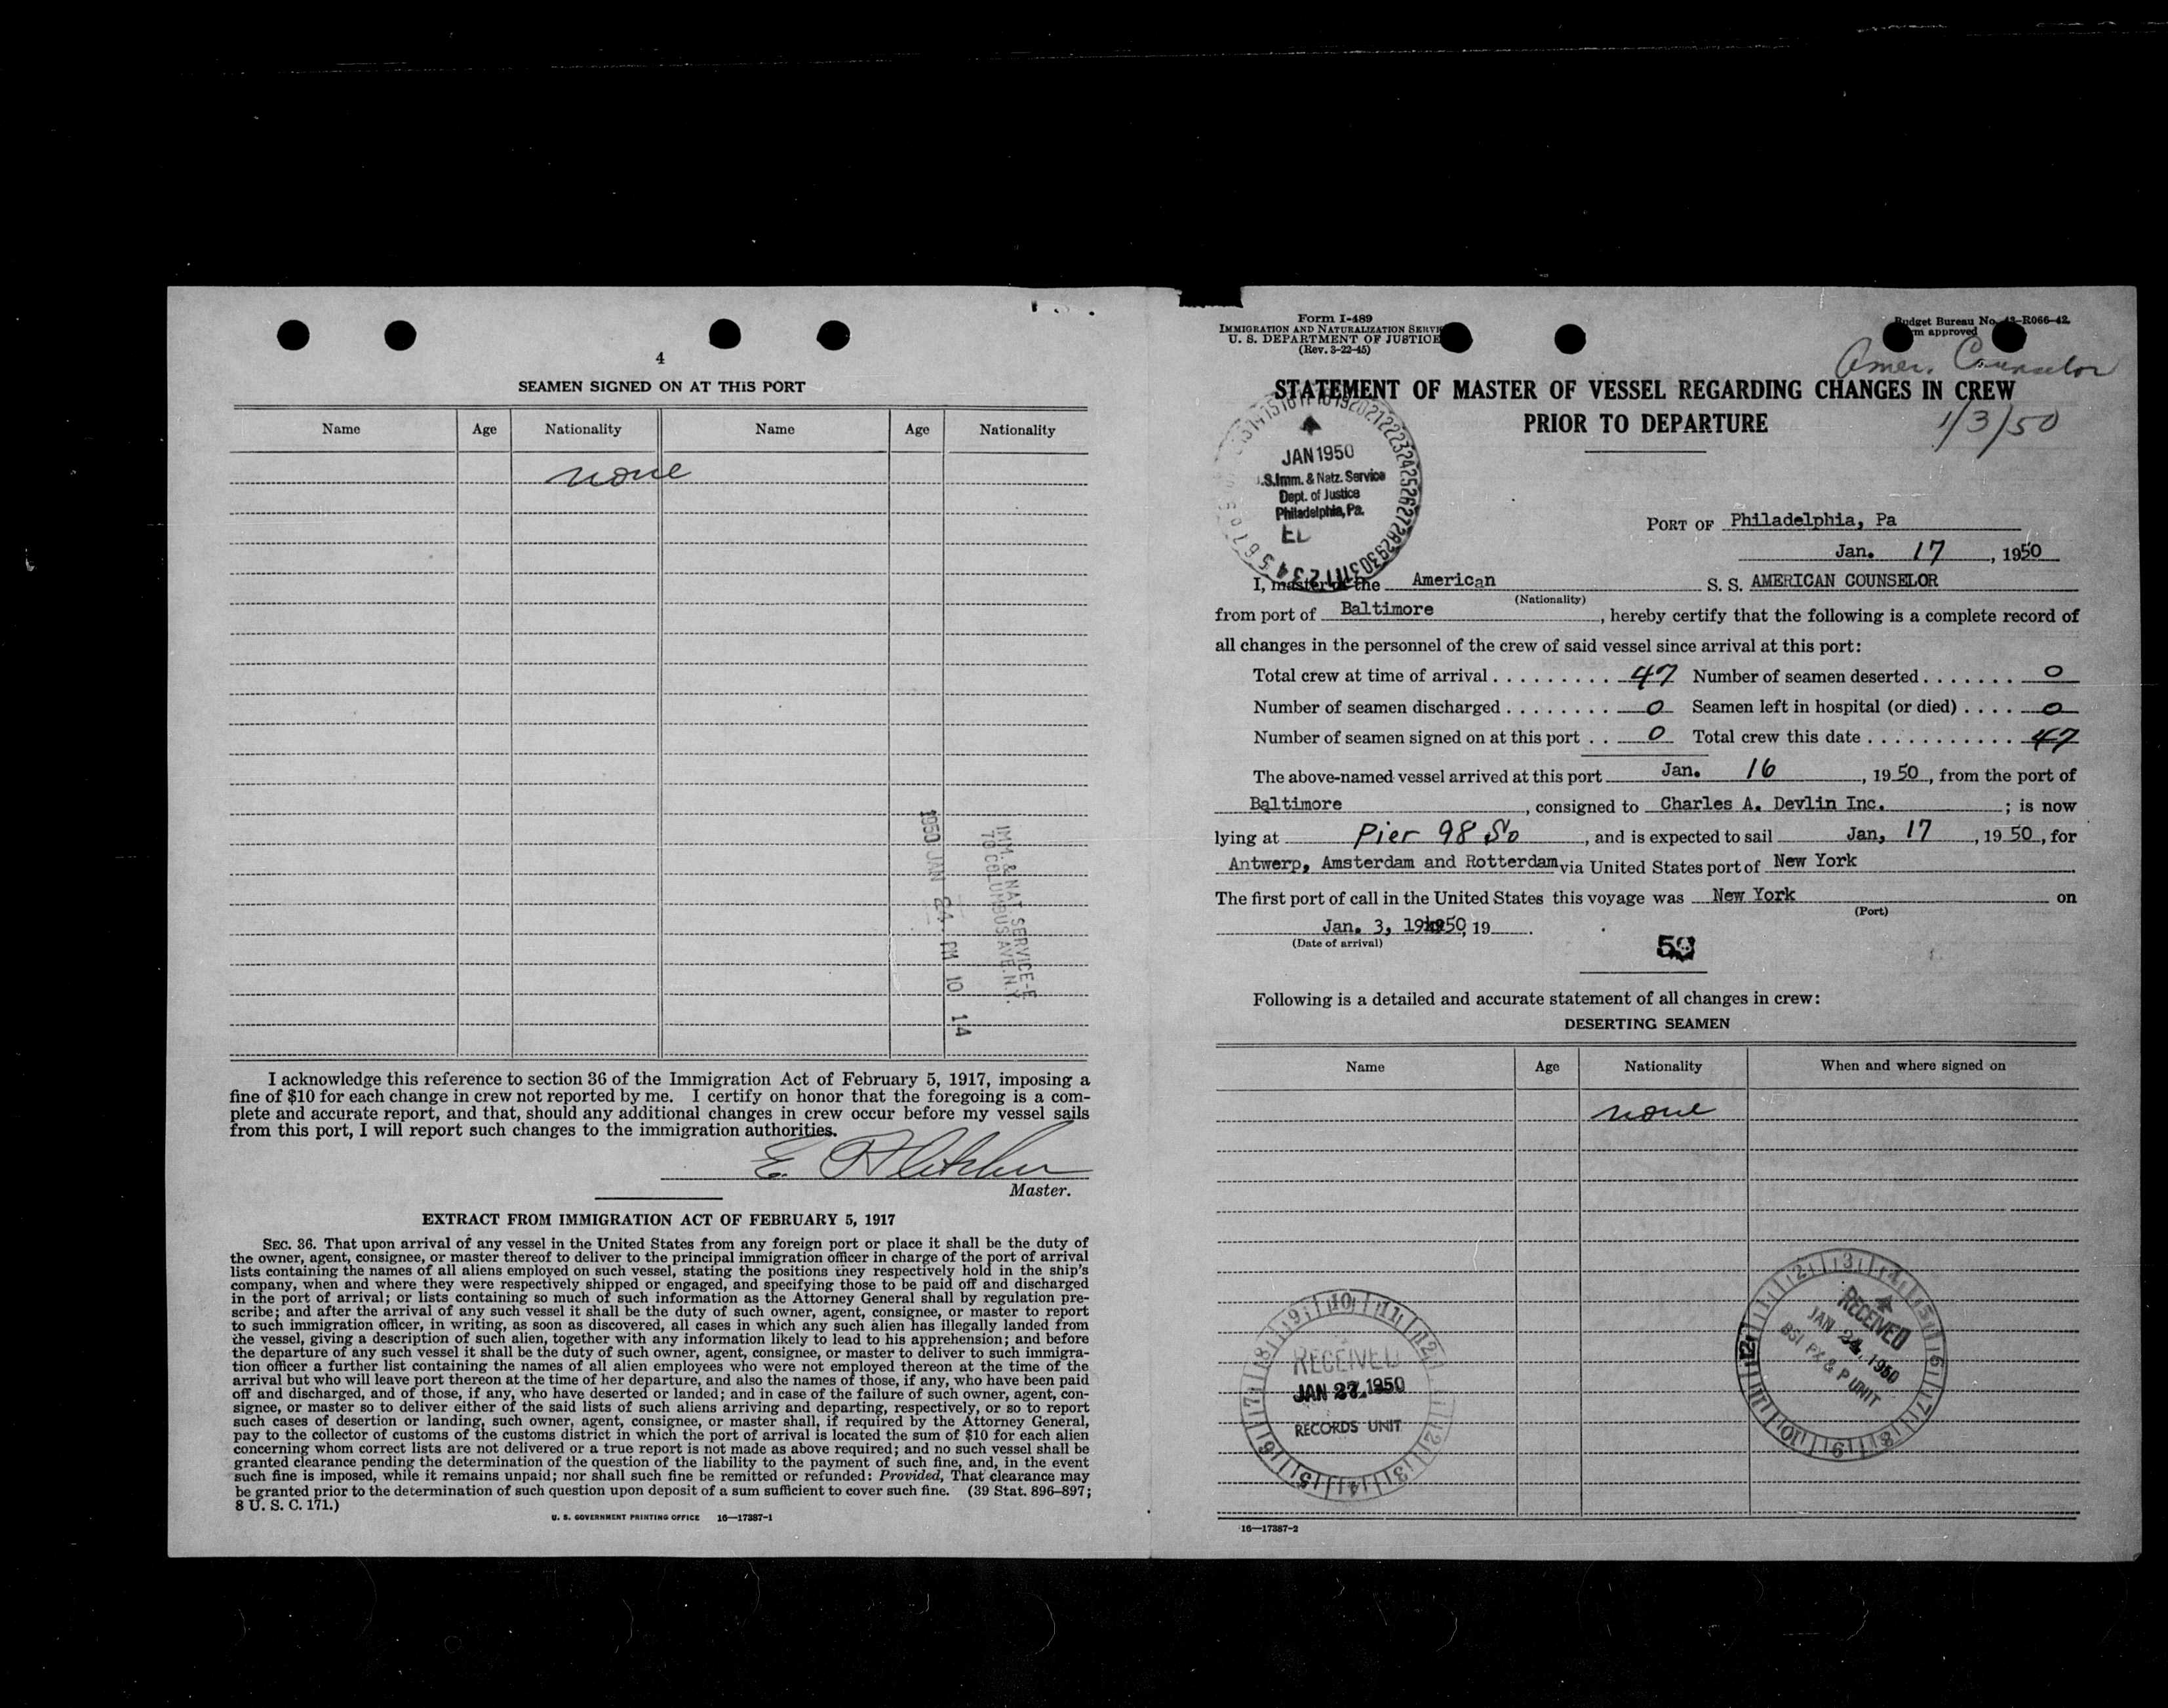 4
SEAMEN SIGNED ON AT THIS PORT
Name Age Nationality Name Age Nationality
none
1950 JAN 24 PM 10 14
IMM. & NAT. SERVICE-E
70 COLUMBUS AVE. N.Y.
I acknowledge this reference to section 36 of the Immigration Act of February 5, 1917, imposing a
fine of $10 for each change in crew not reported by me. I certify on honor that the foregoing is a com-
plete and accurate report, and that, should any additional changes in crew occur before my vessel sails
from this port, I will report such changes to the immigration authorities.
E. Fletcher
Master.
EXTRACT FROM IMMIGRATION ACT OF FEBRUARY 5, 1917
SEC. 36. That upon arrival of any vessel in the United States from any foreign port or place it shall be the duty of
the owner, agent, consignee, or master thereof to deliver to the principal immigration officer in charge of the port of arrival
lists containing the names of all aliens employed on such vessel, stating the positions they respectively hold in the ship's
company, when and where they were respectively shipped or engaged, and specifying those to be paid off and discharged
in the port of arrival; or lists containing so much of such information as the Attorney General shall by regulation pre-
scribe; and after the arrival of any such vessel it shall be the duty of such owner, agent, consignee, or master to report
to such immigration officer, in writing, as soon as discovered, all cases in which any such alien has illegally landed from
the vessel, giving a description of such alien, together with any information likely to lead to his apprehension; and before
the departure of any such vessel it shall be the duty of such owner, agent, consignee, or master to deliver to such immigra-
tion officer a further list containing the names of all alien employees who were not employed thereon at the time of the
arrival but who will leave port thereon at the time of her departure, and also the names of those, if any, who have been paid
off and discharged, and of those, if any, who have deserted or landed; and in case of the failure of such owner, agent, con-
signee, or master so to deliver either of the said lists of such aliens arriving and departing, respectively, or so to report
such cases of desertion or landing, such owner, agent, consignee, or master shall, if required by the Attorney General,
pay to the collector of customs of the customs district in which the port of arrival is located the sum of $10 for each alien
concerning whom correct lists are not delivered or a true report is not made as above required; and no such vessel shall be
granted clearance pending the determination of the question of the liability to the payment of such fine, and, in the event
such fine is imposed, while it remains unpaid; nor shall such fine be remitted or refunded: Provided, That clearance may
be granted prior to the determination of such question upon deposit of a sum sufficient to cover such fine. (39 Stat. 896-897;
8 U. S. C. 171.)
U. S. GOVERNMENT PRINTING OFFICE 16—17387-1
Form I-489
IMMIGRATION AND NATURALIZATION SERVI
U. S. DEPARTMENT OF JUSTICE
(Rev. 3-22-45)
Budget Bureau No. 43-R066-42.
approved
Amer. Counselor
STATEMENT OF MASTER OF VESSEL REGARDING CHANGES IN CREW
PRIOR TO DEPARTURE
1/3/50
JAN 1950
.S.Imm. & Natz. Service
Dept. of Justice
Philadelphia, Pa.
PORT OF Philadelphia, Pa
Jan. 17, 1950
I, master of the American S. S. AMERICAN COUNSELOR
(Nationality)
from port of Baltimore, hereby certify that the following is a complete record of
all changes in the personnel of the crew of said vessel since arrival at this port:
Total crew at time of arrival . . . . . . . . . 47 Number of seamen deserted . . . . . . . 0
Number of seamen discharged . . . . . . . . 0 Seamen left in hospital (or died) . . . . 0
Number of seamen signed on at this port . . 0 Total crew this date . . . . . . . . . . . . 47
The above-named vessel arrived at this port Jan. 16, 1950, from the port of
Baltimore, consigned to Charles A. Devlin Inc.; is now
lying at Pier 98 So, and is expected to sail Jan, 17, 1950, for
Antwerp, Amsterdam and Rotterdam via United States port of New York
The first port of call in the United States this voyage was New York on
(Port)
Jan. 3, 1950, 19 .
(Date of arrival)
Following is a detailed and accurate statement of all changes in crew:
DESERTING SEAMEN
Name Age Nationality When and where signed on
none
RECEIVED
JAN 24, 1950
BSI PX & P UNIT
RECEIVED
JAN 27, 1950
RECORDS UNIT
16—17387-2